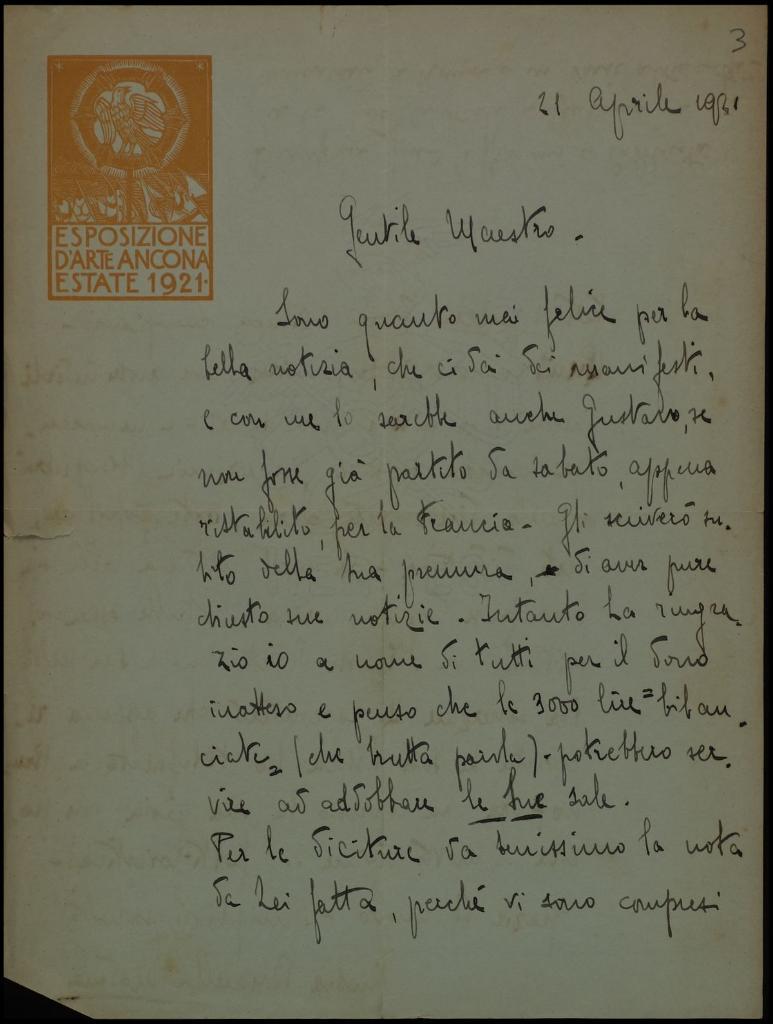 3
21 Aprile 1921
ESPOSIZIONE
D'ARTE ANCONA
ESTATE 1921.
Gentile Maestro -
Sono quanto mai felice per la
bella notizia, che ci dà dei manifesti,
e con me lo sarebbe anche Gustavo, se
non fosse già partito da sabato, appena
ristabilito, per la Francia - Gli scriverò su-
bito della sua premura, e di aver pure
chiesto sue notizie. Intanto La ringra-
zio io a nome di tutti per il dono
inatteso e penso che le 3000 lire = bilan-
ciate = (che brutta parola) - potrebbero ser-
vire ad addobbare le Sue sale.
Per le diciture va benissimo la nota
da Lei fatta, perché vi sono compresi